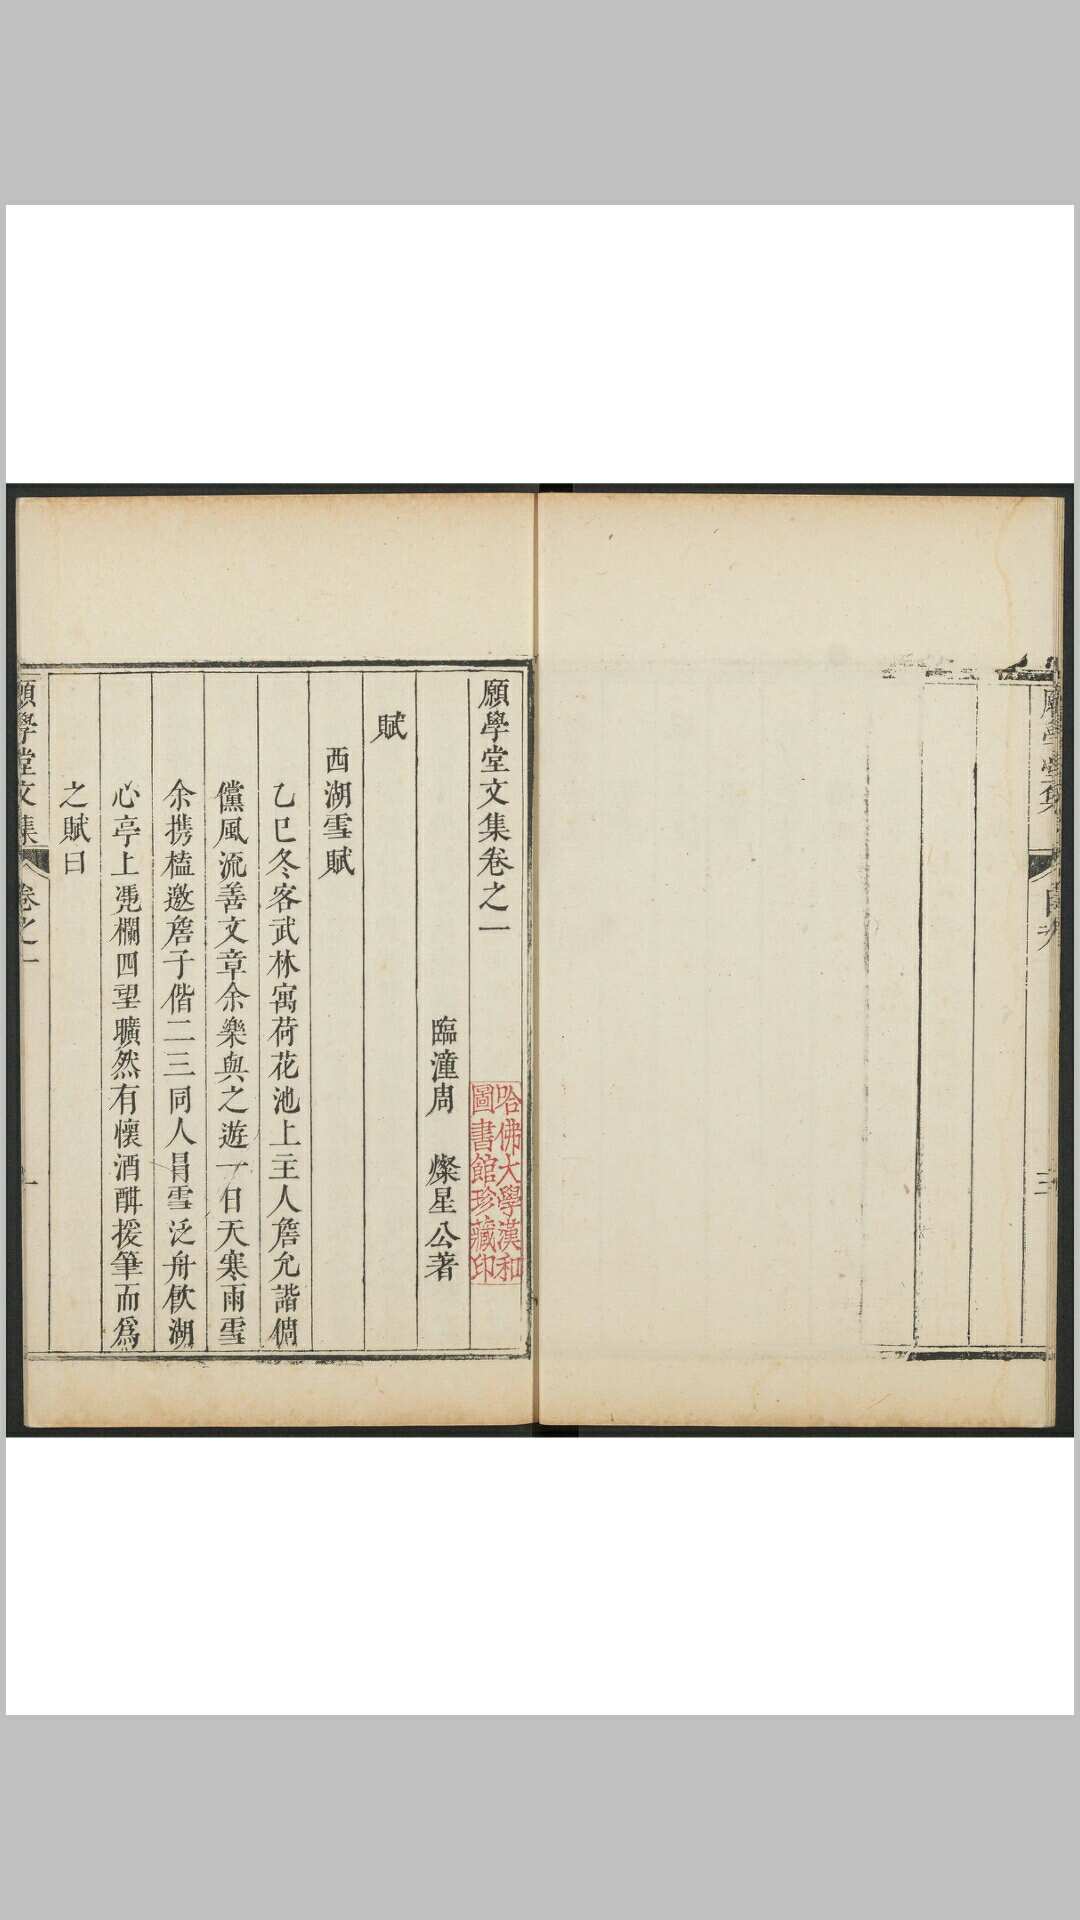 願學堂集
三
願學堂文集卷之一
哈佛大學漢和
圖書館珍藏印
臨潼周　燦星公著
賦
西湖雪賦
乙巳冬客武林寓荷花池上主人詹允諧倜
儻風流善文章余樂與之遊一日天寒雨雪
余携榼邀詹子偕二三同人冐雪泛舟飲湖
心亭上凴欄四望曠然有懷酒酣援筆而爲
之賦曰
願學堂文集
卷之一
一